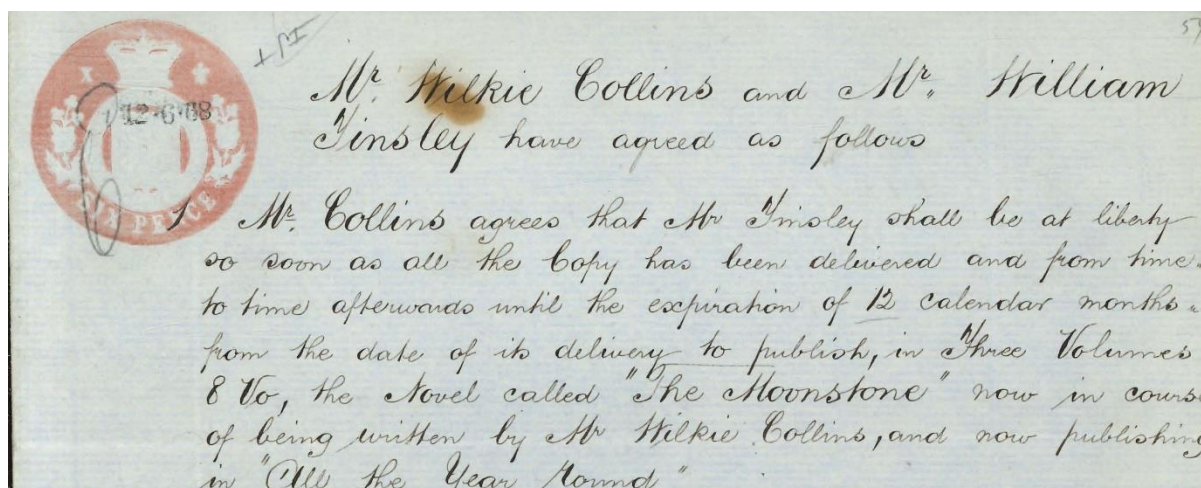 Mr. Wilkie Collins and Mr. William
Tinsley have agreed as follows
1 Mr. Collins agrees that Mr Tinsley shall be at liberty
so soon as all the Copy has been delivered and from time
to time afterwards until the expiration of 12 calendar months
from the date of its delivery to publish, in Three Volumes
8 Vo, the Novel called "The Moonstone" now in course
of being written by Mr Wilkie Collins, and now publishing
in "All the Year Round"
X
12·6·68
SIX PENCE